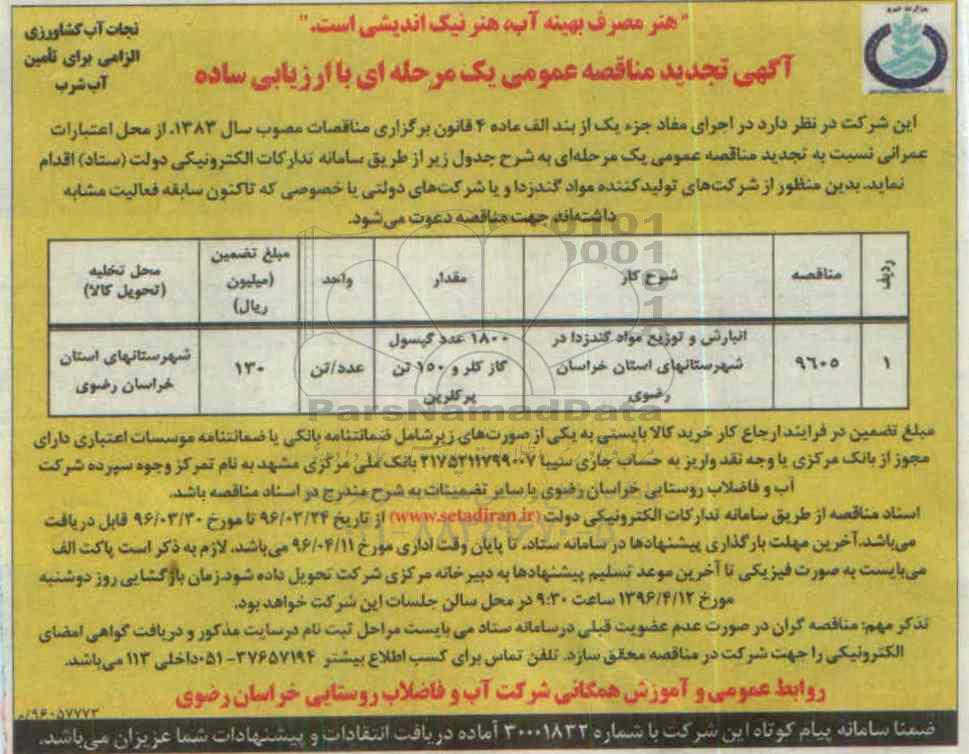 "هنر مصرف بهینه آب، هنر نیک اندیشی است."
نجات آب کشاورزی
الزامی برای تأمین
آب شرب
آگهی تجدید مناقصه عمومی یک مرحله ای با ارزیابی ساده
این شرکت در نظر دارد در اجرای مفاد جزء یک از بند الف ماده ۴ قانون برگزاری مناقصات مصوب سال ۱۳۸۳، از محل اعتبارات
عمرانی نسبت به تجدید مناقصه عمومی یک مرحله‌ای به شرح جدول زیر از طریق سامانه تدارکات الکترونیکی دولت (ستاد) اقدام
نماید. بدین منظور از شرکت‌های تولیدکننده مواد گندزدا و یا شرکت‌های دولتی یا خصوصی که تاکنون سابقه فعالیت مشابه
داشته‌اند جهت مناقصه دعوت می‌شود.
ردیف مناقصه شرح کار مقدار واحد مبلغ تضمین (میلیون ریال) محل تخلیه (تحویل کالا)
۱ ۹٦۰۵ انبارش و توزیع مواد گندزدا در شهرستانهای استان خراسان رضوی ۱۸۰۰ عدد کپسول گاز کلر و ۱۵۰ تن پرکلرین عدد/تن ۱۳۰ شهرستانهای استان خراسان رضوی
ParsNamadData
مبلغ تضمین در فرایند ارجاع کار خرید کالا بایستی به یکی از صورت‌های زیر شامل ضمانتنامه بانکی یا ضمانتنامه موسسات اعتباری دارای
مجوز از بانک مرکزی یا وجه نقد واریز به حساب جاری سیبا ۲۱۷۵۲۱۱۷۹۹۰۰۷ بانک ملی مرکزی مشهد به نام تمرکز وجوه سپرده شرکت
آب و فاضلاب روستایی خراسان رضوی یا سایر تضمینات به شرح مندرج در اسناد مناقصه باشد.
اسناد مناقصه از طریق سامانه تدارکات الکترونیکی دولت (www.setadiran.ir) از تاریخ ۹۶/۰۳/۲۴ تا مورخ ۹۶/۰۳/۳۰ قابل دریافت
می‌باشد. آخرین مهلت بارگذاری پیشنهادها در سامانه ستاد، تا پایان وقت اداری مورخ ۹۶/۰۴/۱۱ می‌باشد. لازم به ذکر است پاکت الف
می‌بایست به صورت فیزیکی تا آخرین موعد تسلیم پیشنهادها به دبیرخانه مرکزی شرکت تحویل داده شود. زمان بازگشایی روز دوشنبه
مورخ ۱۳۹۶/۴/۱۲ ساعت ۹:۳۰ در محل سالن جلسات این شرکت خواهد بود.
تذکر مهم: مناقصه گران در صورت عدم عضویت قبلی درسامانه ستاد می بایست مراحل ثبت نام درسایت مذکور و دریافت گواهی امضای
الکترونیکی را جهت شرکت در مناقصه محقق سازد. تلفن تماس برای کسب اطلاع بیشتر ۳۷۶۵۷۱۹۴-۰۵۱ داخلی ۱۱۳ می‌باشد.
روابط عمومی و آموزش همگانی شرکت آب و فاضلاب روستایی خراسان رضوی
۹۶۰۵۷۷۷۳/م
ضمنا سامانه پیام کوتاه این شرکت با شماره ۳۰۰۰۱۸۳۲ آماده دریافت انتقادات و پیشنهادات شما عزیزان می‌باشد.